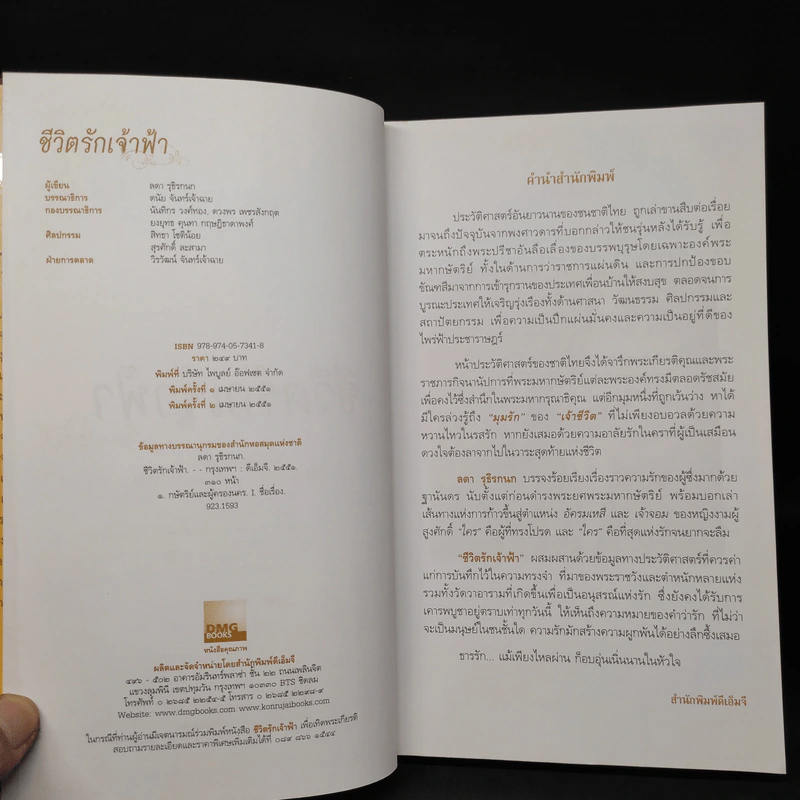 ชีวิตรักเจ้าฟ้า
ผู้เขียน ลดา รุธิรกนก
บรรณาธิการ ดนัย จันทร์เจ้าฉาย
กองบรรณาธิการ นันทิกร วงศ์ทอง, ดวงพร เพชรสังกฤต
ยงยุทธ คุนทา กฤษฎิธาดาพงศ์
ศิลปกรรม สิทธา โชติน้อย
สุรศักดิ์ ละสามา
ฝ่ายการตลาด วิรวัฒน์ จันทร์เจ้าฉาย
ISBN 978-974-05-7341-8
ราคา ๒๔๙ บาท
พิมพ์ที่ บริษัท ไพบูลย์ อ๊อฟเซต จำกัด
พิมพ์ครั้งที่ ๑ เมษายน ๒๕๕๑
พิมพ์ครั้งที่ ๒ เมษายน ๒๕๕๑
ข้อมูลทางบรรณานุกรมของสำนักหอสมุดแห่งชาติ
ลดา รุธิรกนก.
ชีวิตรักเจ้าฟ้า. - - กรุงเทพฯ : ดีเอ็มจี, ๒๕๕๑.
๓๑๐ หน้า
๑. กษัตริย์และผู้ครองนคร. I. ชื่อเรื่อง.
923.1593
DMG
BOOKS
หนังสือคุณภาพ
ผลิตและจัดจำหน่ายโดยสำนักพิมพ์ดีเอ็มจี
๔๙๖ - ๕๐๒ อาคารอัมรินทร์พลาซ่า ชั้น ๒๒ ถนนเพลินจิต
แขวงลุมพินี เขตปทุมวัน กรุงเทพฯ ๑๐๓๓๐ BTS ชิดลม
โทรศัพท์ ๐ ๒๖๘๕ ๒๒๕๔-๕ โทรสาร ๐ ๒๖๘๕ ๒๒๙๘-๙
Website: www.dmgbooks.com, www.konrujaibooks.com
ในกรณีที่ท่านผู้อ่านมีเจตนารมณ์ร่วมพิมพ์หนังสือ ชีวิตรักเจ้าฟ้า เพื่อเทิดพระเกียรติ
สอบถามรายละเอียดและราคาพิเศษเพิ่มเติมได้ที่ ๐๘๙ ๘๖๖ ๑๕๔๔
คำนำสำนักพิมพ์
ประวัติศาสตร์อันยาวนานของชนชาติไทย ถูกเล่าขานสืบต่อเรื่อย
มาจนถึงปัจจุบันจากพงศาวดารที่บอกกล่าวให้ชนรุ่นหลังได้รับรู้ เพื่อ
ตระหนักถึงพระปรีชาอันลือเลื่องของบรรพบุรุษโดยเฉพาะองค์พระ
มหากษัตริย์ ทั้งในด้านการว่าราชการแผ่นดิน และการปกป้องขอบ
ขัณฑสีมาจากการเข้ารุกรานของประเทศเพื่อนบ้านให้สงบสุข ตลอดจนการ
บูรณะประเทศให้เจริญรุ่งเรืองทั้งด้านศาสนา วัฒนธรรม ศิลปกรรมและ
สถาปัตยกรรม เพื่อความเป็นปึกแผ่นมั่นคงและความเป็นอยู่ที่ดีของ
ไพร่ฟ้าประชาราษฎร์
หน้าประวัติศาสตร์ของชาติไทยจึงได้จารึกพระเกียรติคุณและพระ
ราชภารกิจนานัปการที่พระมหากษัตริย์แต่ละพระองค์ทรงมีตลอดรัชสมัย
เพื่อคงไว้ซึ่งสำนึกในพระมหากรุณาธิคุณ แต่อีกมุมหนึ่งที่ถูกเว้นว่าง หาได้
มีใครล่วงรู้ถึง “มุมรัก” ของ “เจ้าชีวิต” ที่ไม่เพียงอบอวลด้วยความ
หวานไหวในรสรัก หากยังเสมอด้วยความอาลัยรักในคราที่ผู้เป็นเสมือน
ดวงใจต้องลาจากไปในวาระสุดท้ายแห่งชีวิต
ลดา รุธิรกนก บรรจงร้อยเรียงเรื่องราวความรักของผู้ซึ่งมากด้วย
ฐานันดร นับตั้งแต่ก่อนดำรงพระยศพระมหากษัตริย์ พร้อมบอกเล่า
เส้นทางแห่งการก้าวขึ้นสู่ตำแหน่ง อัครมเหสี และ เจ้าจอม ของหญิงงามผู้
สูงศักดิ์ “ใคร” คือผู้ที่ทรงโปรด และ “ใคร” คือที่สุดแห่งรักจนยากจะลืม
“ชีวิตรักเจ้าฟ้า” ผสมผสานด้วยข้อมูลทางประวัติศาสตร์ที่ควรค่า
แก่การบันทึกไว้ในความทรงจำ ที่มาของพระราชวังและตำหนักหลายแห่ง
รวมทั้งวัดวาอารามที่เกิดขึ้นเพื่อเป็นอนุสรณ์แห่งรัก ซึ่งยังคงได้รับการ
เคารพบูชาอยู่ตราบเท่าทุกวันนี้ ให้เห็นถึงความหมายของคำว่ารัก ที่ไม่ว่า
จะเป็นมนุษย์ในชนชั้นใด ความรักมักสร้างความผูกพันได้อย่างลึกซึ้งเสมอ
ธารรัก... แม้เพียงไหลผ่าน ก็อบอุ่นเนิ่นนานในหัวใจ
สำนักพิมพ์ดีเอ็มจี